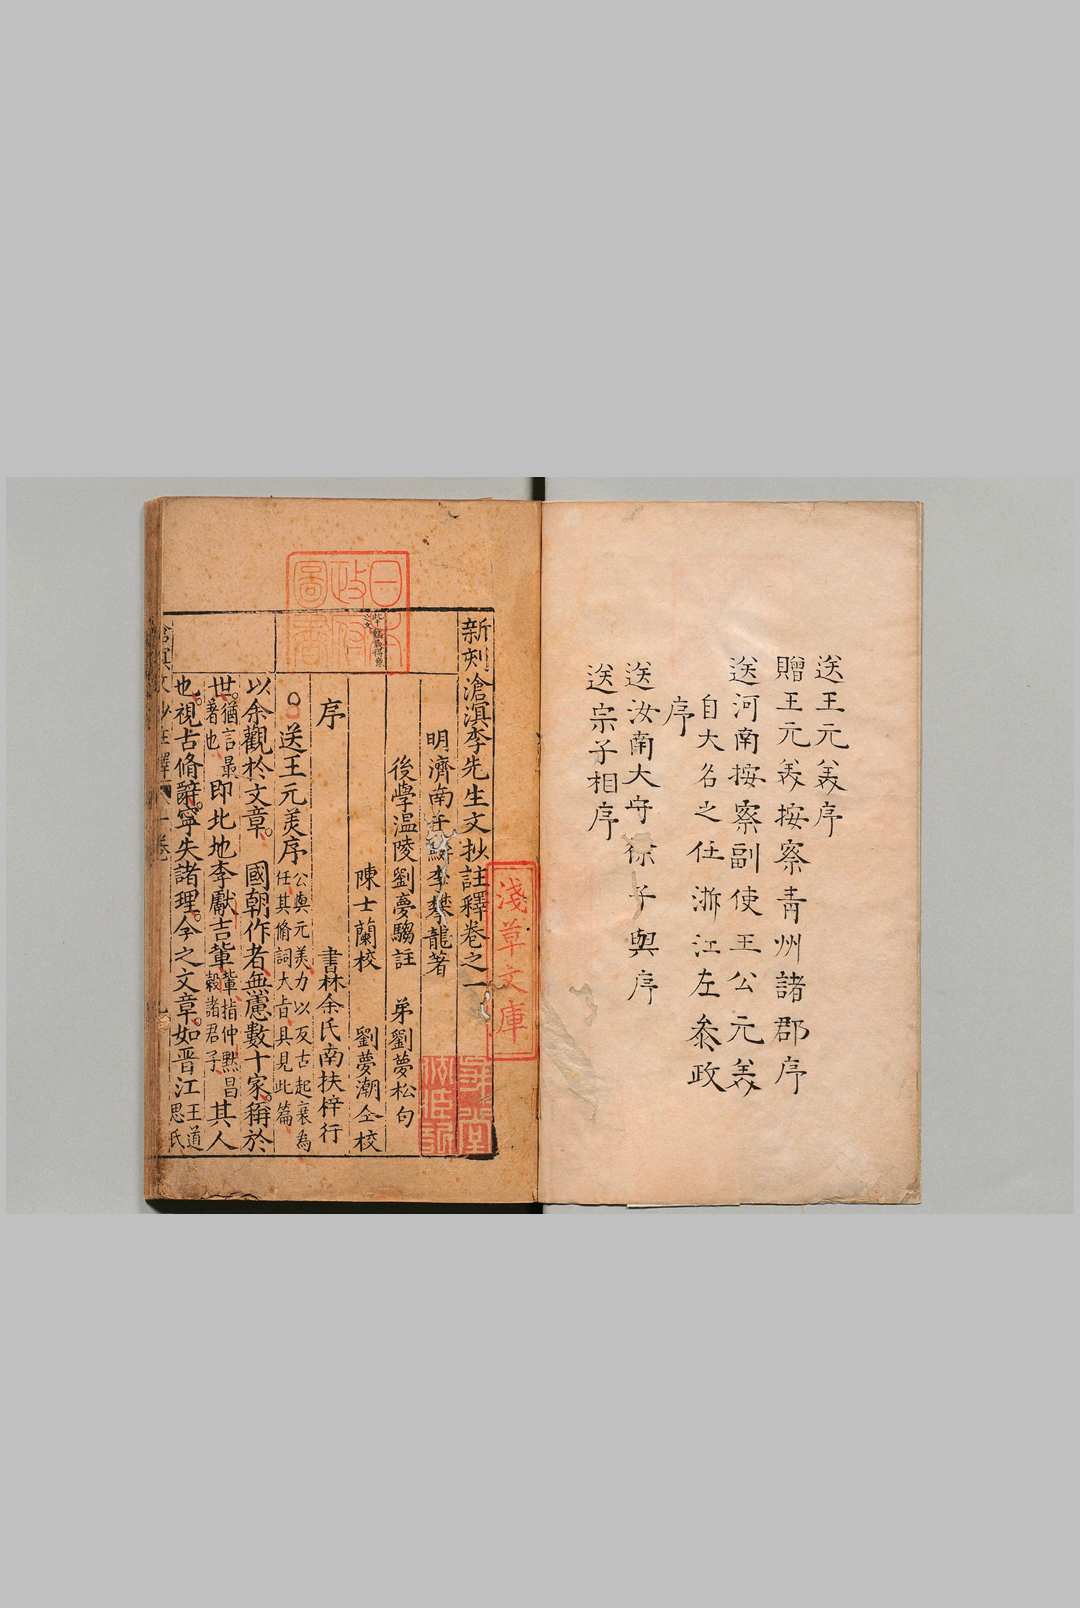 送王元美序
贈王元美按察青州諸郡序
送河南按察副使王公元美
自大名之任浙江左叅政
序
送汝南大守徐子與序
送宗子相序
新刻滄溟李先生文抄註釋卷之一
明濟南于鱗李攀龍著
後學温陵劉夢騶註　弟劉夢松句
陳士蘭校　劉夢潮仝校
序　書林余氏南扶梓行
○送王元美序 公與元美力以反古起衰為
任其脩詞大旨具見此篇
以余觀於文章。國朝作者無慮數十家。稱於
世。猶言最
著也 即北地李獻吉輩 輩指仲黙昌
穀諸君子 其人
也。視古脩辭。寧失諸理。今之文章。如晋江 王道
思氏
淺草文庫
日本政府圖書